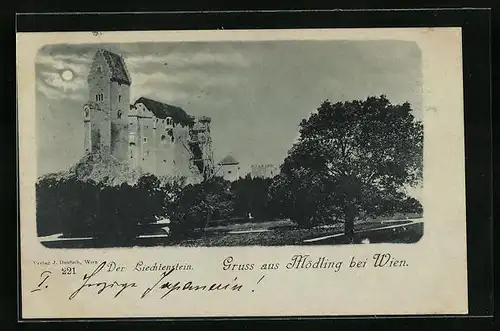 Verlag J. Deutsch, Wien
221 Der Liechtenstein. Gruss aus Mödling bei Wien.
I.